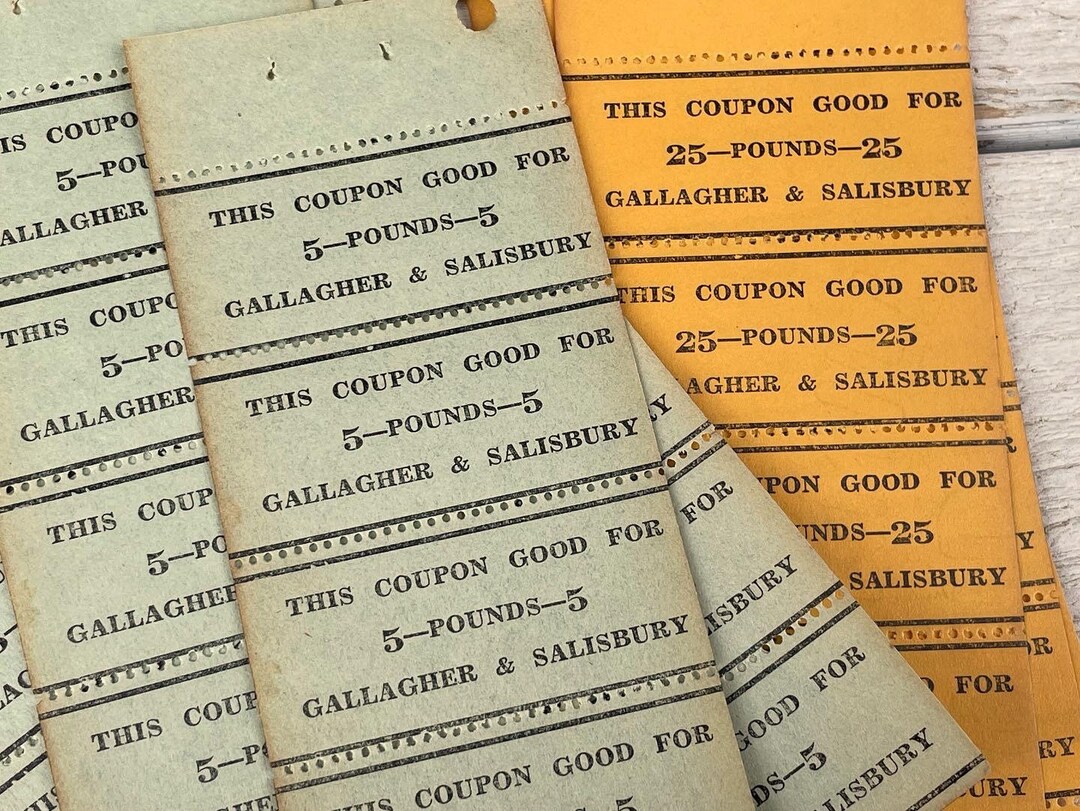 IS COUPO
5—POU
ALLAGHER
THIS COUPO
5—PO
GALLAGHER
THIS COUP
5—PO
GALLAGHER
THIS COUP
5—P
GALLAGHE
THIS COUPON GOOD FOR
5—POUNDS—5
GALLAGHER & SALISBURY
THIS COUPON GOOD FOR
5—POUNDS—5
GALLAGHER & SALISBURY
THIS COUPON GOOD FOR
5—POUNDS—5
GALLAGHER & SALISBURY
THIS COUPON GOOD FOR
5
Y
FOR
ISBURY
GOOD FOR
DS—5
LISBURY
THIS COUPON GOOD FOR
25—POUNDS—25
GALLAGHER & SALISBURY
THIS COUPON GOOD FOR
25—POUNDS—25
AGHER & SALISBURY
UPON GOOD FOR
UNDS—25
SALISBURY
FOR
URY
Y
R
RY